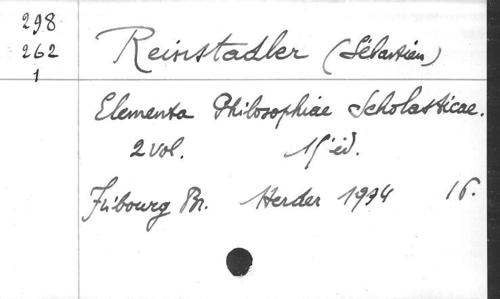 298
262
1
Reinstadler (Sébastien)
Elementa Philosophiae Scholasticae.
2 vol. 15 éd.
Fribourg Br. Herder 1934 16.